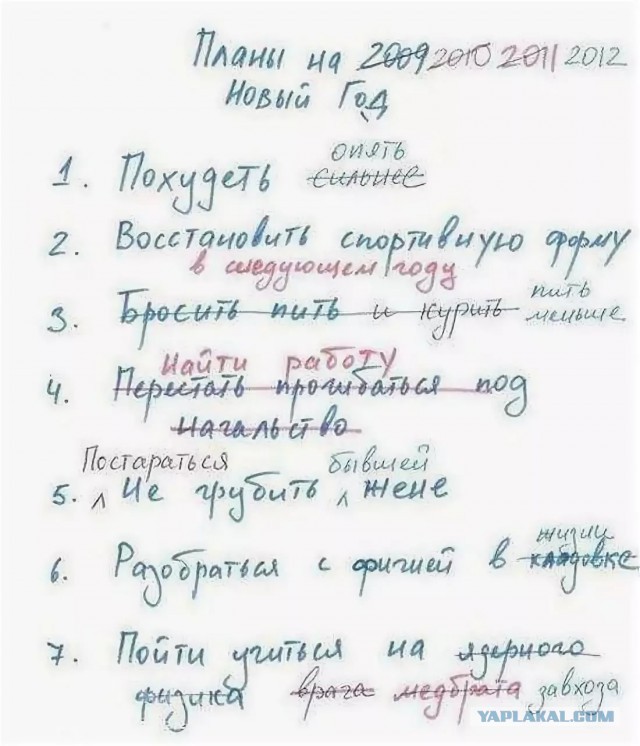 Планы на 2009 2010 2011 2012
Новый Год
опять
1. Похудеть сильнее
2. Восстановить спортивную форму
в следующем году
пить
3. Бросить пить и курить меньше
Найти работу
4. Перестать прогибаться под
начальство
Постараться бывшей
5. Не грубить жене
жизни
6. Разобраться с фигнёй в кладовке
7. Пойти учиться на ядерного
физика врача медбрата завхоза
YAPLAKAL.COM